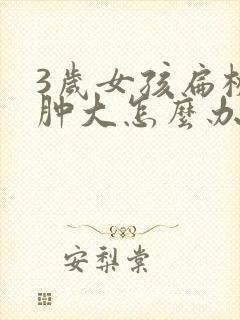 3歲女孩扁桃
肿大怎麼办
安梨棠